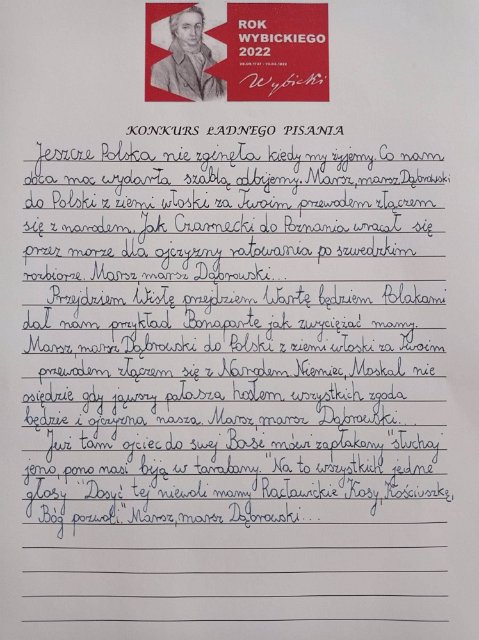 ROK
WYBICKIEGO
2022
Wybicki
KONKURS ŁADNEGO PISANIA
Jeszcze Polska nie zginęła kiedy my żyjemy. Co nam
obca moc wydarła szablą odbijemy. Marsz, marsz, Dąbrowski
do Polski z ziemi włoski za Twoim przewodem złączem
się z narodem. Jak Czarnecki do Poznania wracał się
przez morze dla ojczyzny ratowania po szwedzkim
rozbiorze. Marsz, marsz Dąbrowski...
Przejdziem Wisłę przejdziem Wartę będziem Polakami
dał nam przykład Bonaparte jak zwyciężać mamy.
Marsz, marsz Dąbrowski do Polski z ziemi włoski za Twoim
przewodem złączem się z Narodem. Niemiec, Moskal nie
osiędzie gdy jąwszy pałasza hasłem wszystkich zgoda
będzie i ojczyzna nasza. Marsz, marsz Dąbrowski...
Już tam ojciec do swej Basi mówi zapłakany "słuchaj
jeno, pono nasi biją w tarabany." Na to wszystkich jedne
głosy "Dosyć tej niewoli mamy Racławickie Kosy, Kościuszkę,
Bóg pozwoli." Marsz, marsz Dąbrowski...